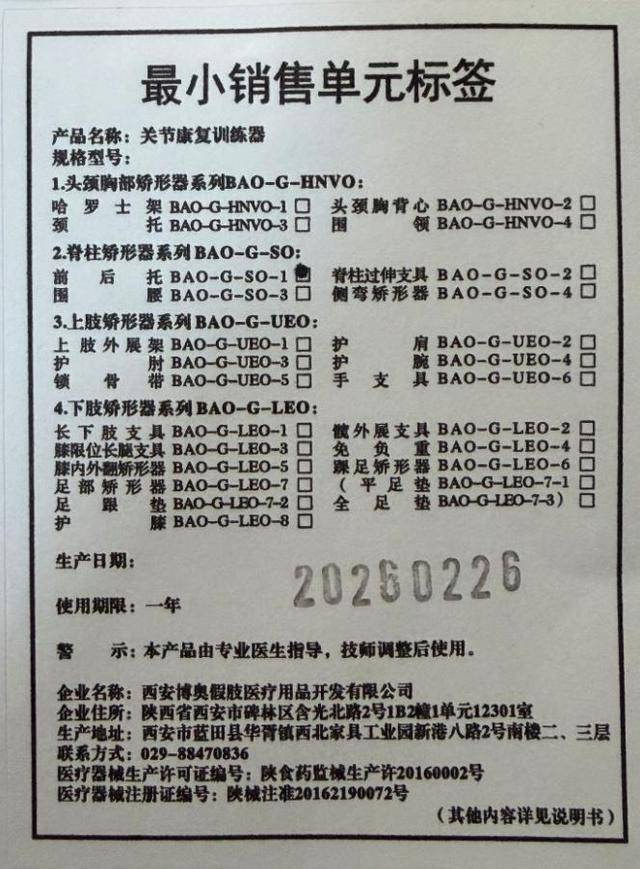 最小销售单元标签
产品名称：关节康复训练器
规格型号：
1.头颈胸部矫形器系列BAO-G-HNVO：
哈罗士架 BAO-G-HNVO-1 □ 头颈胸背心 BAO-G-HNVO-2 □
颈托 BAO-G-HNVO-3 □ 围领 BAO-G-HNVO-4 □
2.脊柱矫形器系列BAO-G-SO：
前后托 BAO-G-SO-1 ■ 脊柱过伸支具 BAO-G-SO-2 □
围腰 BAO-G-SO-3 □ 侧弯矫形器 BAO-G-SO-4 □
3.上肢矫形器系列BAO-G-UEO：
上肢外展架 BAO-G-UEO-1 □ 护肩 BAO-G-UEO-2 □
护肘 BAO-G-UEO-3 □ 护腕 BAO-G-UEO-4 □
锁骨带 BAO-G-UEO-5 □ 手支具 BAO-G-UEO-6 □
4.下肢矫形器系列BAO-G-LEO：
长下肢支具 BAO-G-LEO-1 □ 髋外展支具 BAO-G-LEO-2 □
膝限位长腿支具 BAO-G-LEO-3 □ 免负重 BAO-G-LEO-4 □
膝内外翻矫形器 BAO-G-LEO-5 □ 踝足矫形器 BAO-G-LEO-6 □
足部矫形器 BAO-G-LEO-7 □ （平足垫 BAO-G-LEO-7-1 □
足跟垫 BAO-G-LEO-7-2 □ 全足垫 BAO-G-LEO-7-3）□
护膝 BAO-G-LEO-8 □
生产日期：
20260226
使用期限：一年
警示：本产品由专业医生指导，技师调整后使用。
企业名称：西安博奥假肢医疗用品开发有限公司
企业住所：陕西省西安市碑林区含光北路2号1B2幢1单元12301室
生产地址：西安市蓝田县华胥镇西北家具工业园新港八路2号南楼二、三层
联系方式：029-88470836
医疗器械生产许可证编号：陕食药监械生产许20160002号
医疗器械注册证编号：陕械注准20162190072号
（其他内容详见说明书）